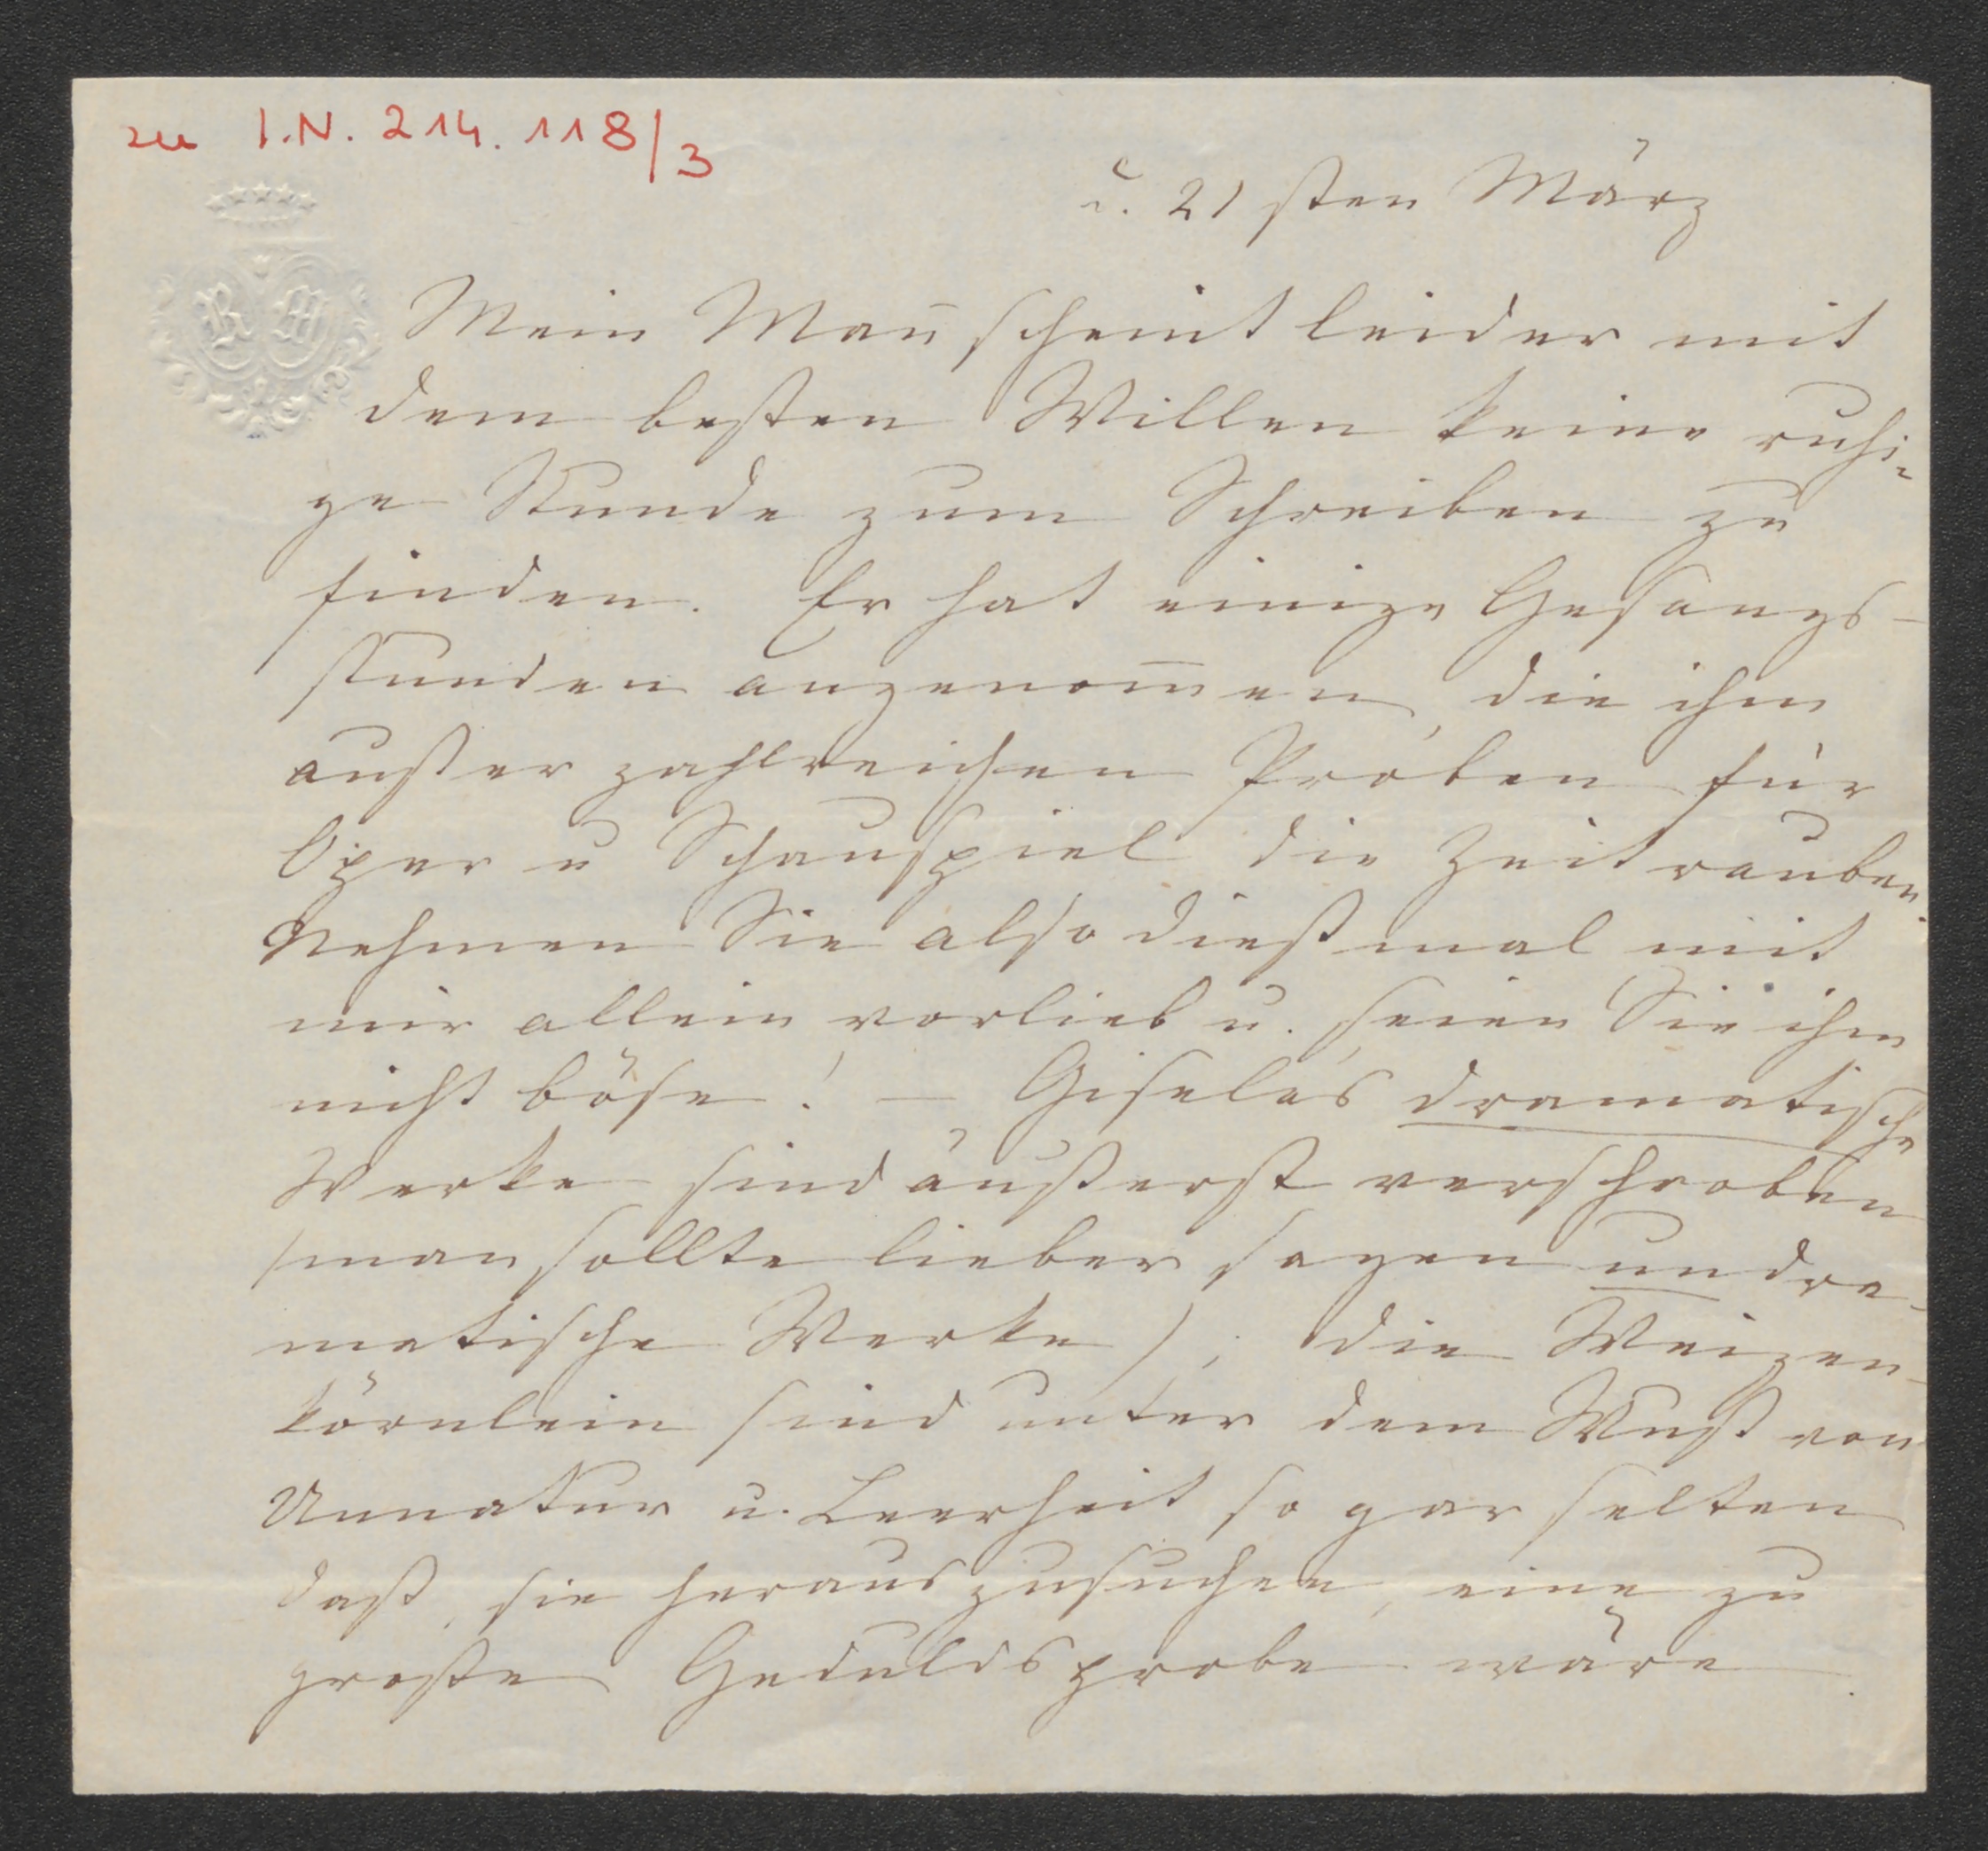 zu I.N. 214.118/3
d. 21 sten März
R M
Mein Mañ scheint leider mit
dem besten Willen keine ruhi-
ge Stunde zum Schreiben zu
finden. Er hat einige Gesangs-
stunden angenom̅en, die ihm
außer zahlreichen Proben für
Oper u Schauspiel die Zeit rauben.
Nehmen Sie also dießmal mit
mir allein vorlieb u. seien Sie ihm
nicht böse! — Gisela's dramatische
Werke sind äußerst verschroben
(man sollte lieber sagen undra-
matische Werke); die Weizen-
körnlein sind unter dem Wust von
Unnatur u. Leerheit so gar selten
daß, sie herauszusuchen, eine zu
große Geduldsprobe wäre.